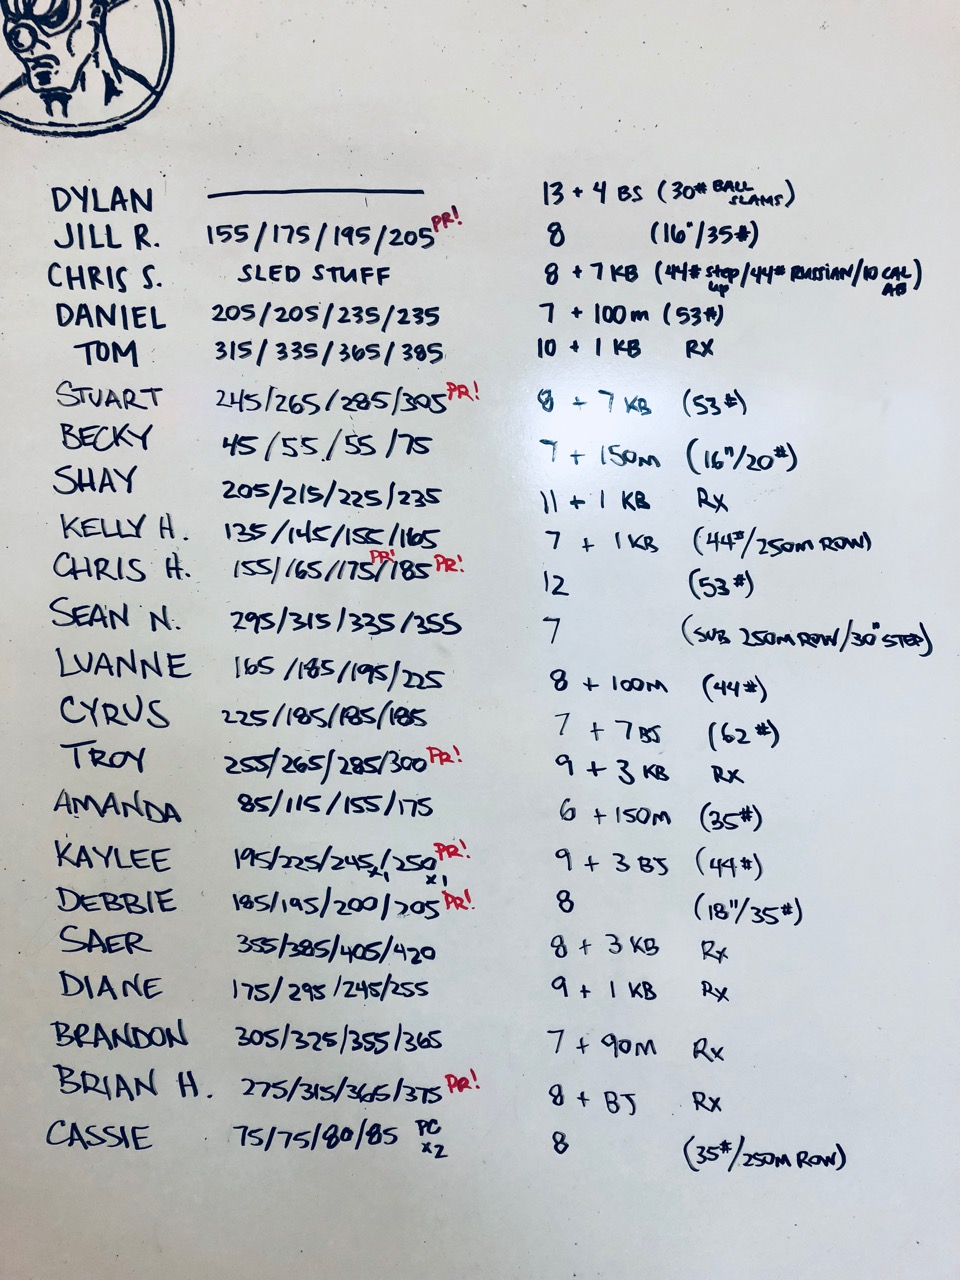 DYLAN 13 + 4 BS (30# BALL SLAMS)
JILL R. 155/175/195/205 PR! 8 (16"/35#)
CHRIS S. SLED STUFF 8 + 7 KB (44# STEP UP/44# RUSSIAN/10 CAL AB)
DANIEL 205/205/235/235 7 + 100m (53#)
TOM 315/335/365/385 10 + 1 KB RX
STUART 245/265/285/305 PR! 8 + 7 KB (53#)
BECKY 45/55/55/75 7 + 150M (16"/20#)
SHAY 205/215/225/235 11 + 1 KB Rx
KELLY H. 135/145/155/165 7 + 1 KB (44#/250M ROW)
CHRIS H. 155/165/175 PR!/185 PR! 12 (53#)
SEAN N. 295/315/335/355 7 (SUB 250M ROW/30" STEP)
LUANNE 165/185/195/225 8 + 100M (44#)
CYRUS 225/185/185/185 7 + 7 BJ (62#)
TROY 255/265/285/300 PR! 9 + 3 KB Rx
AMANDA 85/115/155/175 6 + 150M (35#)
KAYLEE 195/225/245 x1/250 x1 PR! 9 + 3 BJ (44#)
DEBBIE 185/195/200/205 PR! 8 (18"/35#)
SAER 355/385/405/420 8 + 3 KB Rx
DIANE 175/295/245/255 9 + 1 KB Rx
BRANDON 305/325/355/365 7 + 90M Rx
BRIAN H. 275/315/365/375 PR! 8 + BJ Rx
CASSIE 75/75/80/85 PC x2 8 (35#/250M ROW)